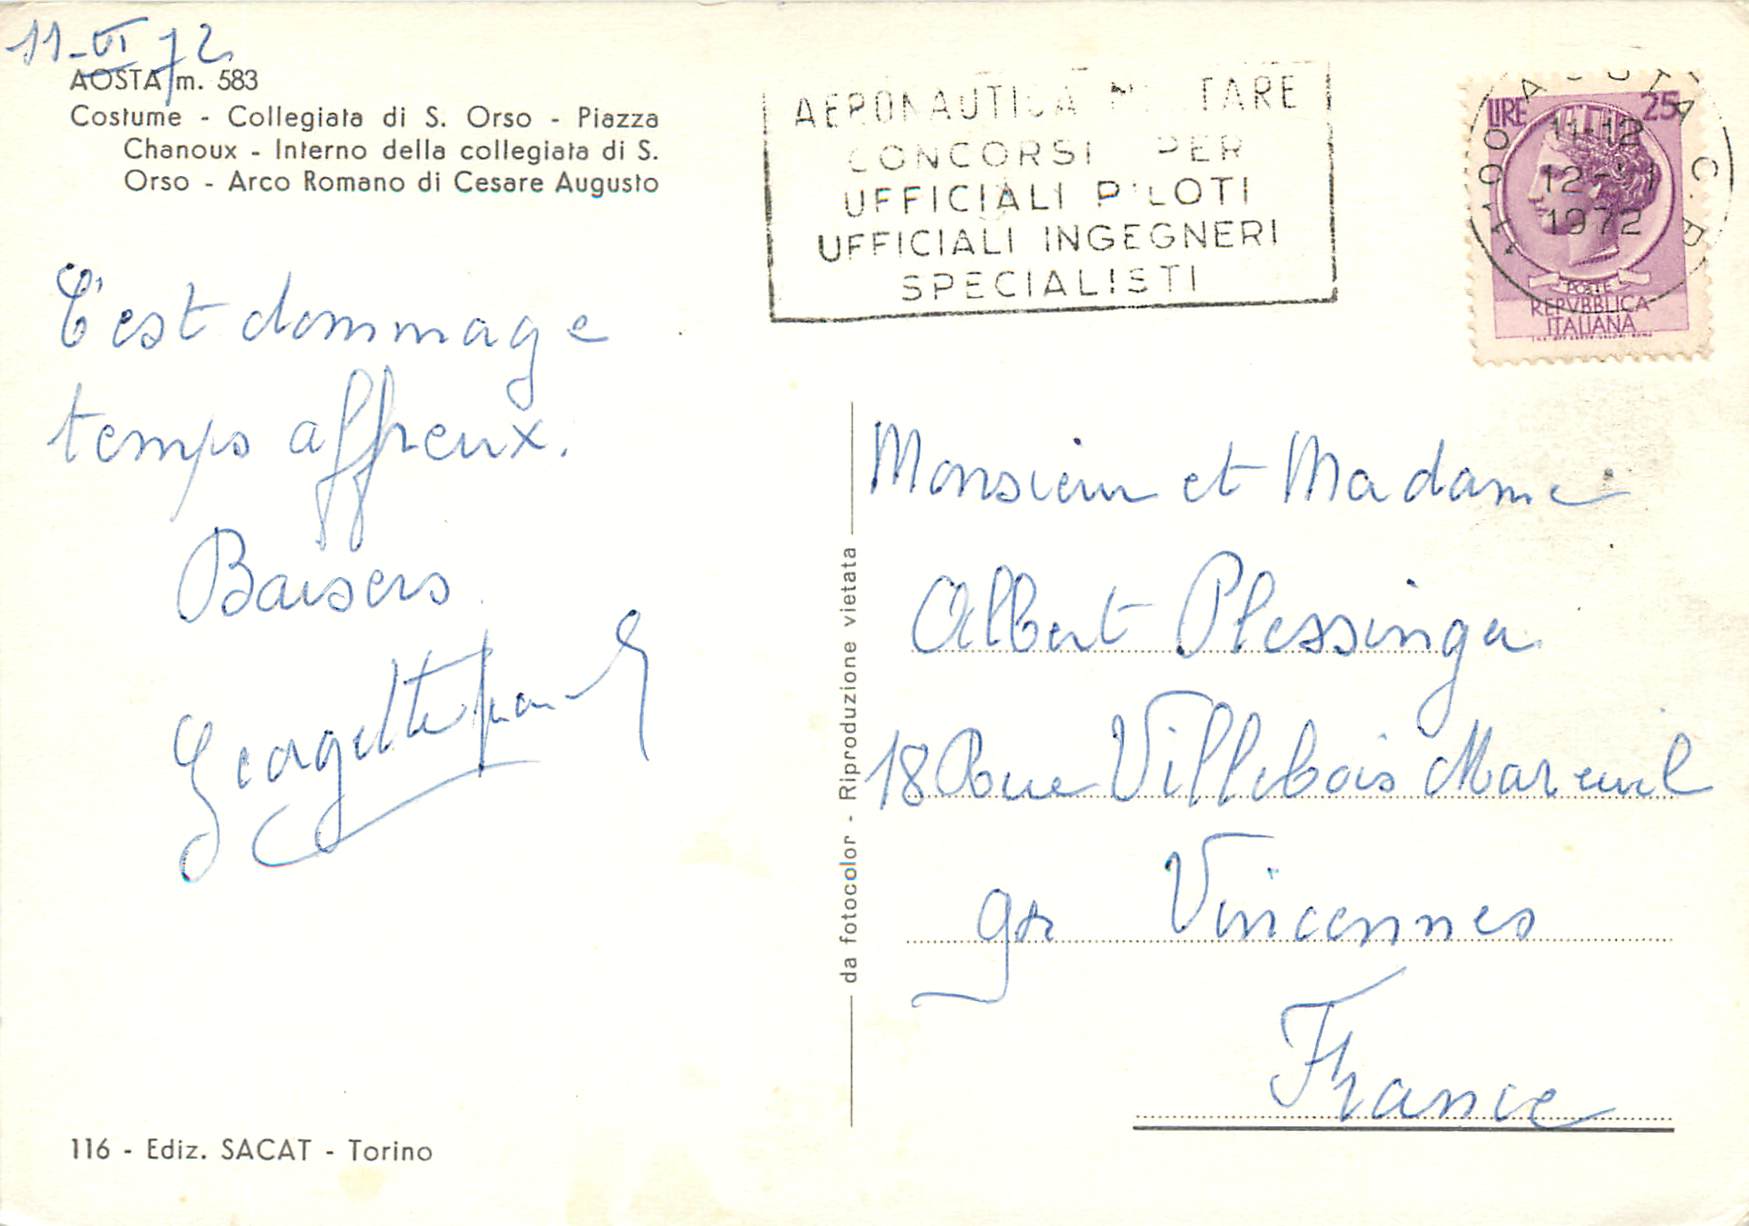 11-VI 72
AOSTA m. 583
Costume - Collegiata di S. Orso - Piazza
Chanoux - Interno della collegiata di S.
Orso - Arco Romano di Cesare Augusto
C'est dommage
temps affreux.
Baisers
Georgette
116 - Ediz. SACAT - Torino
da fotocolor - Riproduzione vietata
AERONAUTICA MILITARE
CONCORSI PER
UFFICIALI PILOTI
UFFICIALI INGEGNERI
SPECIALISTI
LIRE 25
POSTE
REPVBBLICA
ITALIANA
11100 AOSTA C.P.
11-12
1972
Monsieur et Madame
Albert Plessinger
18 Rue Villebois Mareuil
94 Vincennes
France